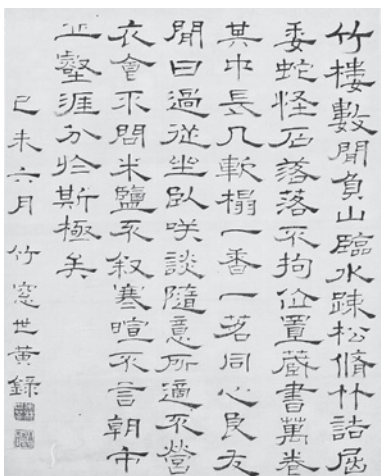 竹樓數間負山臨水踈松脩竹詰屈
委蛇怪石落落不拘位置藏書萬卷
其中長几軟榻一香一茗同心良友
閒日過從坐臥咲談隨意所適不營
衣食不問米鹽不叙寒暄不言朝市
丘壑涯分於斯極矣
己未六月竹窓世黃錄